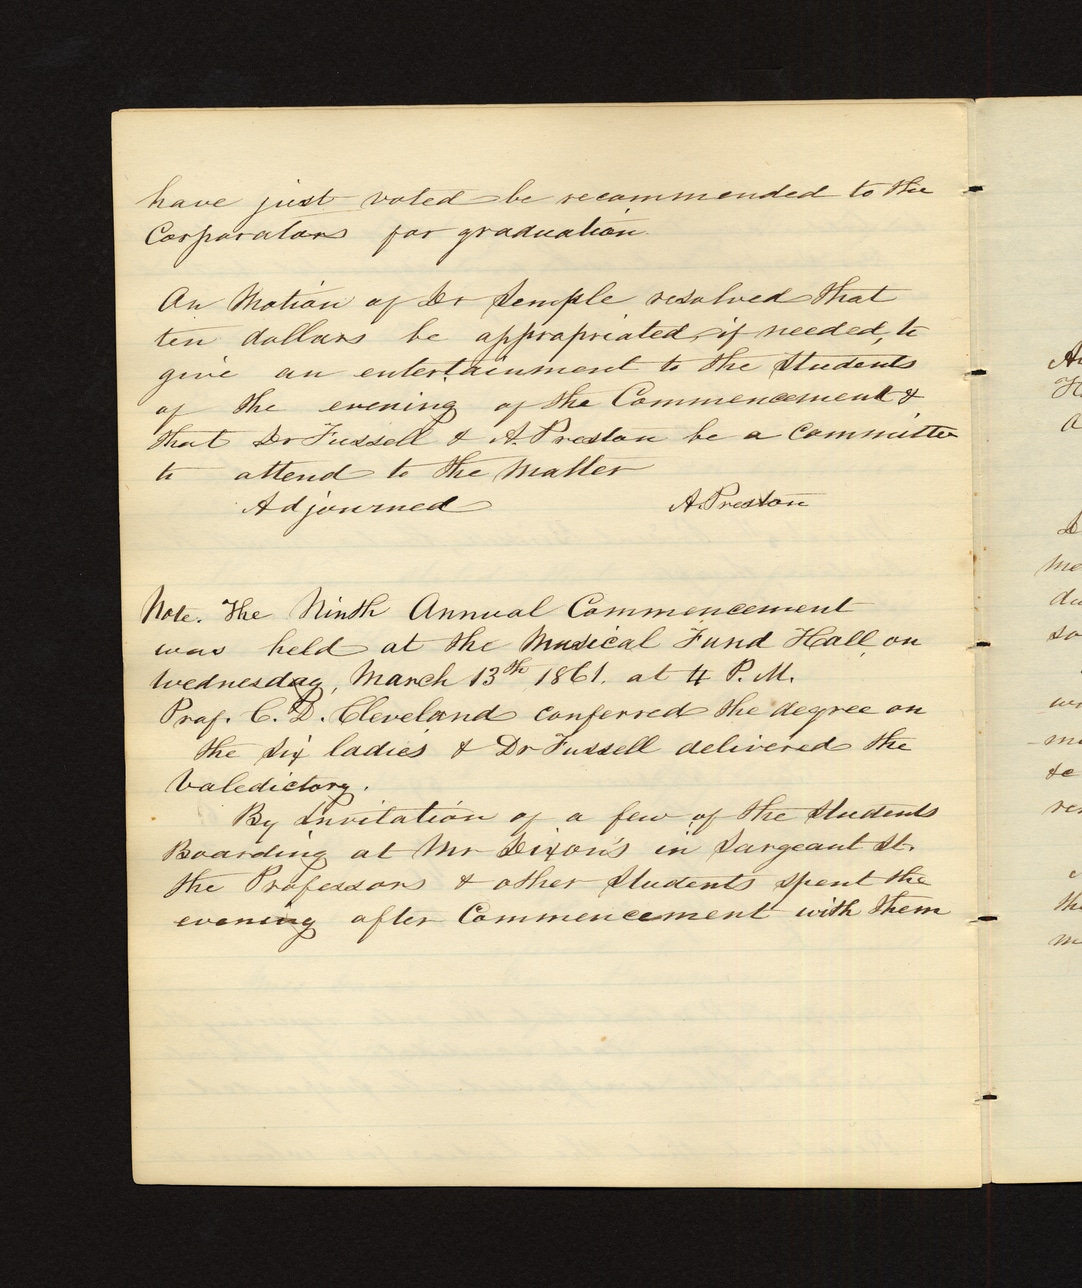 have just voted be recommended to the
Corporators for graduation.
On Motion of Dr Semple resolved that
ten dollars be appropriated, if needed, to
give an entertainment to the Students
of the evening of the Commencement &
that Dr Fussell & A. Preston be a Committee
to attend to the Matter
Adjourned A. Preston
Note. The Ninth Annual Commencement
was held at the Musical Fund Hall, on
Wednesday, March 13th 1861. at 4 P.M.
Prof. C. D. Cleveland conferred the degree on
the six ladies & Dr Fussell delivered the
Valedictory.
By Invitation of a few of the Students
Boarding at Mr Dixon's in Sargeant St.
the Professors & other Students spent the
evening after Commencement with them